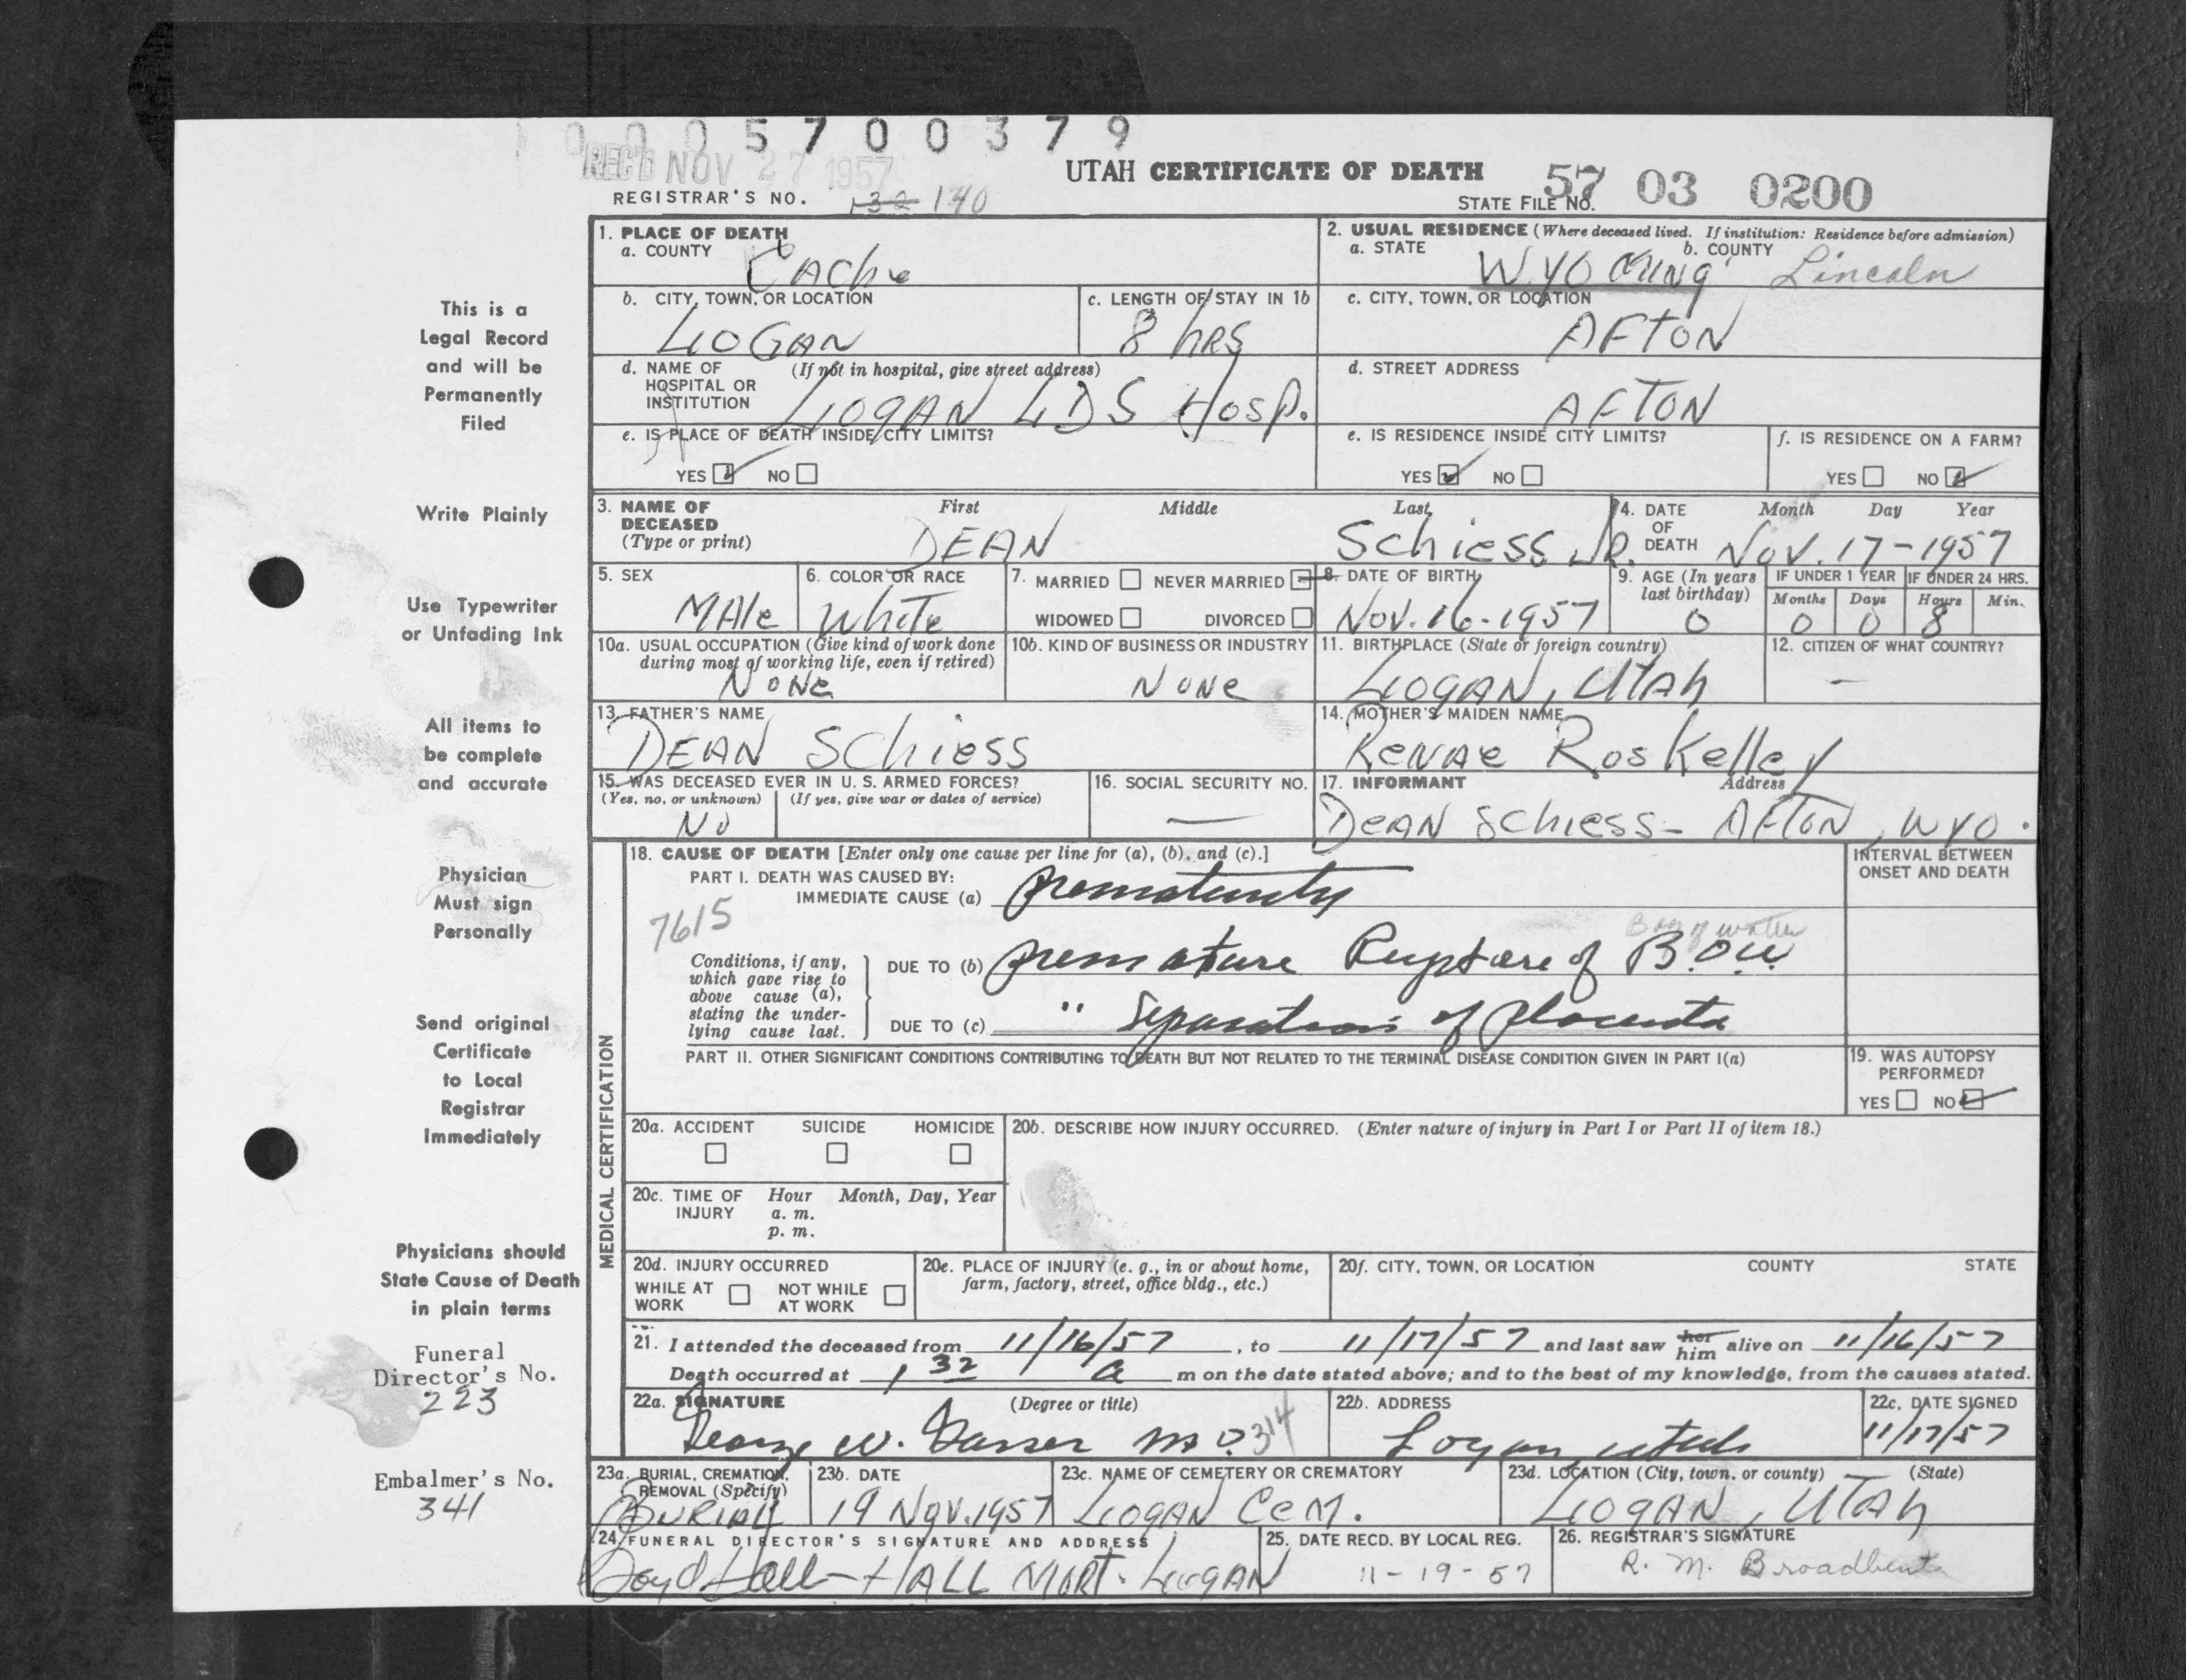 1 0 0 0 5 7 0 0 3 7 9
REC'D NOV 27 1957
UTAH CERTIFICATE OF DEATH
REGISTRAR'S NO. 132 140
STATE FILE NO. 57 03 0200
This is a
Legal Record
and will be
Permanently
Filed
Write Plainly
Use Typewriter
or Unfading Ink
All items to
be complete
and accurate
Physician
Must sign
Personally
Send original
Certificate
to Local
Registrar
Immediately
Physicians should
State Cause of Death
in plain terms
Funeral
Director's No.
223
Embalmer's No.
341
1. PLACE OF DEATH
a. COUNTY Cache
2. USUAL RESIDENCE (Where deceased lived. If institution: Residence before admission)
a. STATE WYOMING b. COUNTY Lincoln
b. CITY, TOWN, OR LOCATION LOGAN
c. LENGTH OF STAY IN 1b 8 HRS
c. CITY, TOWN, OR LOCATION AFTON
d. NAME OF HOSPITAL OR INSTITUTION (If not in hospital, give street address) LOGAN LDS Hosp.
d. STREET ADDRESS AFTON
e. IS PLACE OF DEATH INSIDE CITY LIMITS?
YES NO
e. IS RESIDENCE INSIDE CITY LIMITS?
YES NO
f. IS RESIDENCE ON A FARM?
YES NO
3. NAME OF DECEASED (Type or print) First Middle Last
DEAN Schiess JR.
4. DATE OF DEATH Month Day Year
Nov. 17-1957
5. SEX Male
6. COLOR OR RACE White
7. MARRIED NEVER MARRIED
WIDOWED DIVORCED
8. DATE OF BIRTH Nov. 16-1957
9. AGE (In years last birthday) 0
IF UNDER 1 YEAR Months 0 Days 0
IF UNDER 24 HRS. Hours 8 Min.
10a. USUAL OCCUPATION (Give kind of work done during most of working life, even if retired) None
10b. KIND OF BUSINESS OR INDUSTRY None
11. BIRTHPLACE (State or foreign country) LOGAN, UTAH
12. CITIZEN OF WHAT COUNTRY? —
13. FATHER'S NAME DEAN Schiess
14. MOTHER'S MAIDEN NAME Renae Roskelley
15. WAS DECEASED EVER IN U. S. ARMED FORCES?
(Yes, no, or unknown) (If yes, give war or dates of service)
No
16. SOCIAL SECURITY NO. —
17. INFORMANT Address
DEAN Schiess - AFTON, WYO.
MEDICAL CERTIFICATION
18. CAUSE OF DEATH [Enter only one cause per line for (a), (b), and (c).]
INTERVAL BETWEEN ONSET AND DEATH
PART I. DEATH WAS CAUSED BY:
IMMEDIATE CAUSE (a) prematurity
7615
Bag of water
Conditions, if any, which gave rise to above cause (a), stating the underlying cause last.
DUE TO (b) premature Rupture of B.O.W.
DUE TO (c) " Separation of placenta
PART II. OTHER SIGNIFICANT CONDITIONS CONTRIBUTING TO DEATH BUT NOT RELATED TO THE TERMINAL DISEASE CONDITION GIVEN IN PART I(a)
19. WAS AUTOPSY PERFORMED?
YES NO
20a. ACCIDENT SUICIDE HOMICIDE
20b. DESCRIBE HOW INJURY OCCURRED. (Enter nature of injury in Part I or Part II of item 18.)
20c. TIME OF INJURY Hour Month, Day, Year
a. m.
p. m.
20d. INJURY OCCURRED
WHILE AT WORK NOT WHILE AT WORK
20e. PLACE OF INJURY (e. g., in or about home, farm, factory, street, office bldg., etc.)
20f. CITY, TOWN, OR LOCATION COUNTY STATE
21. I attended the deceased from 11/16/57, to 11/17/57 and last saw her him alive on 11/16/57
Death occurred at 1 32 a m on the date stated above; and to the best of my knowledge, from the causes stated.
22a. SIGNATURE (Degree or title)
George W. Gasser M.D. 314
22b. ADDRESS Logan, Utah
22c. DATE SIGNED 11/17/57
23a. BURIAL, CREMATION, REMOVAL (Specify) BURIAL
23b. DATE 19 Nov. 1957
23c. NAME OF CEMETERY OR CREMATORY LOGAN CEM.
23d. LOCATION (City, town, or county) (State)
LOGAN, UTAH
24. FUNERAL DIRECTOR'S SIGNATURE AND ADDRESS
Hall - HALL MORT. LOGAN
25. DATE RECD. BY LOCAL REG. 11-19-57
26. REGISTRAR'S SIGNATURE R. M. Broadbent